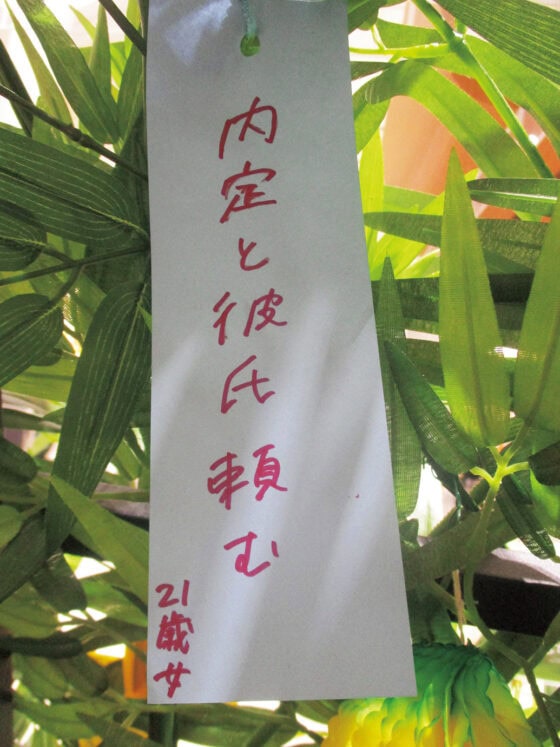 内定と彼氏頼む
21歳女